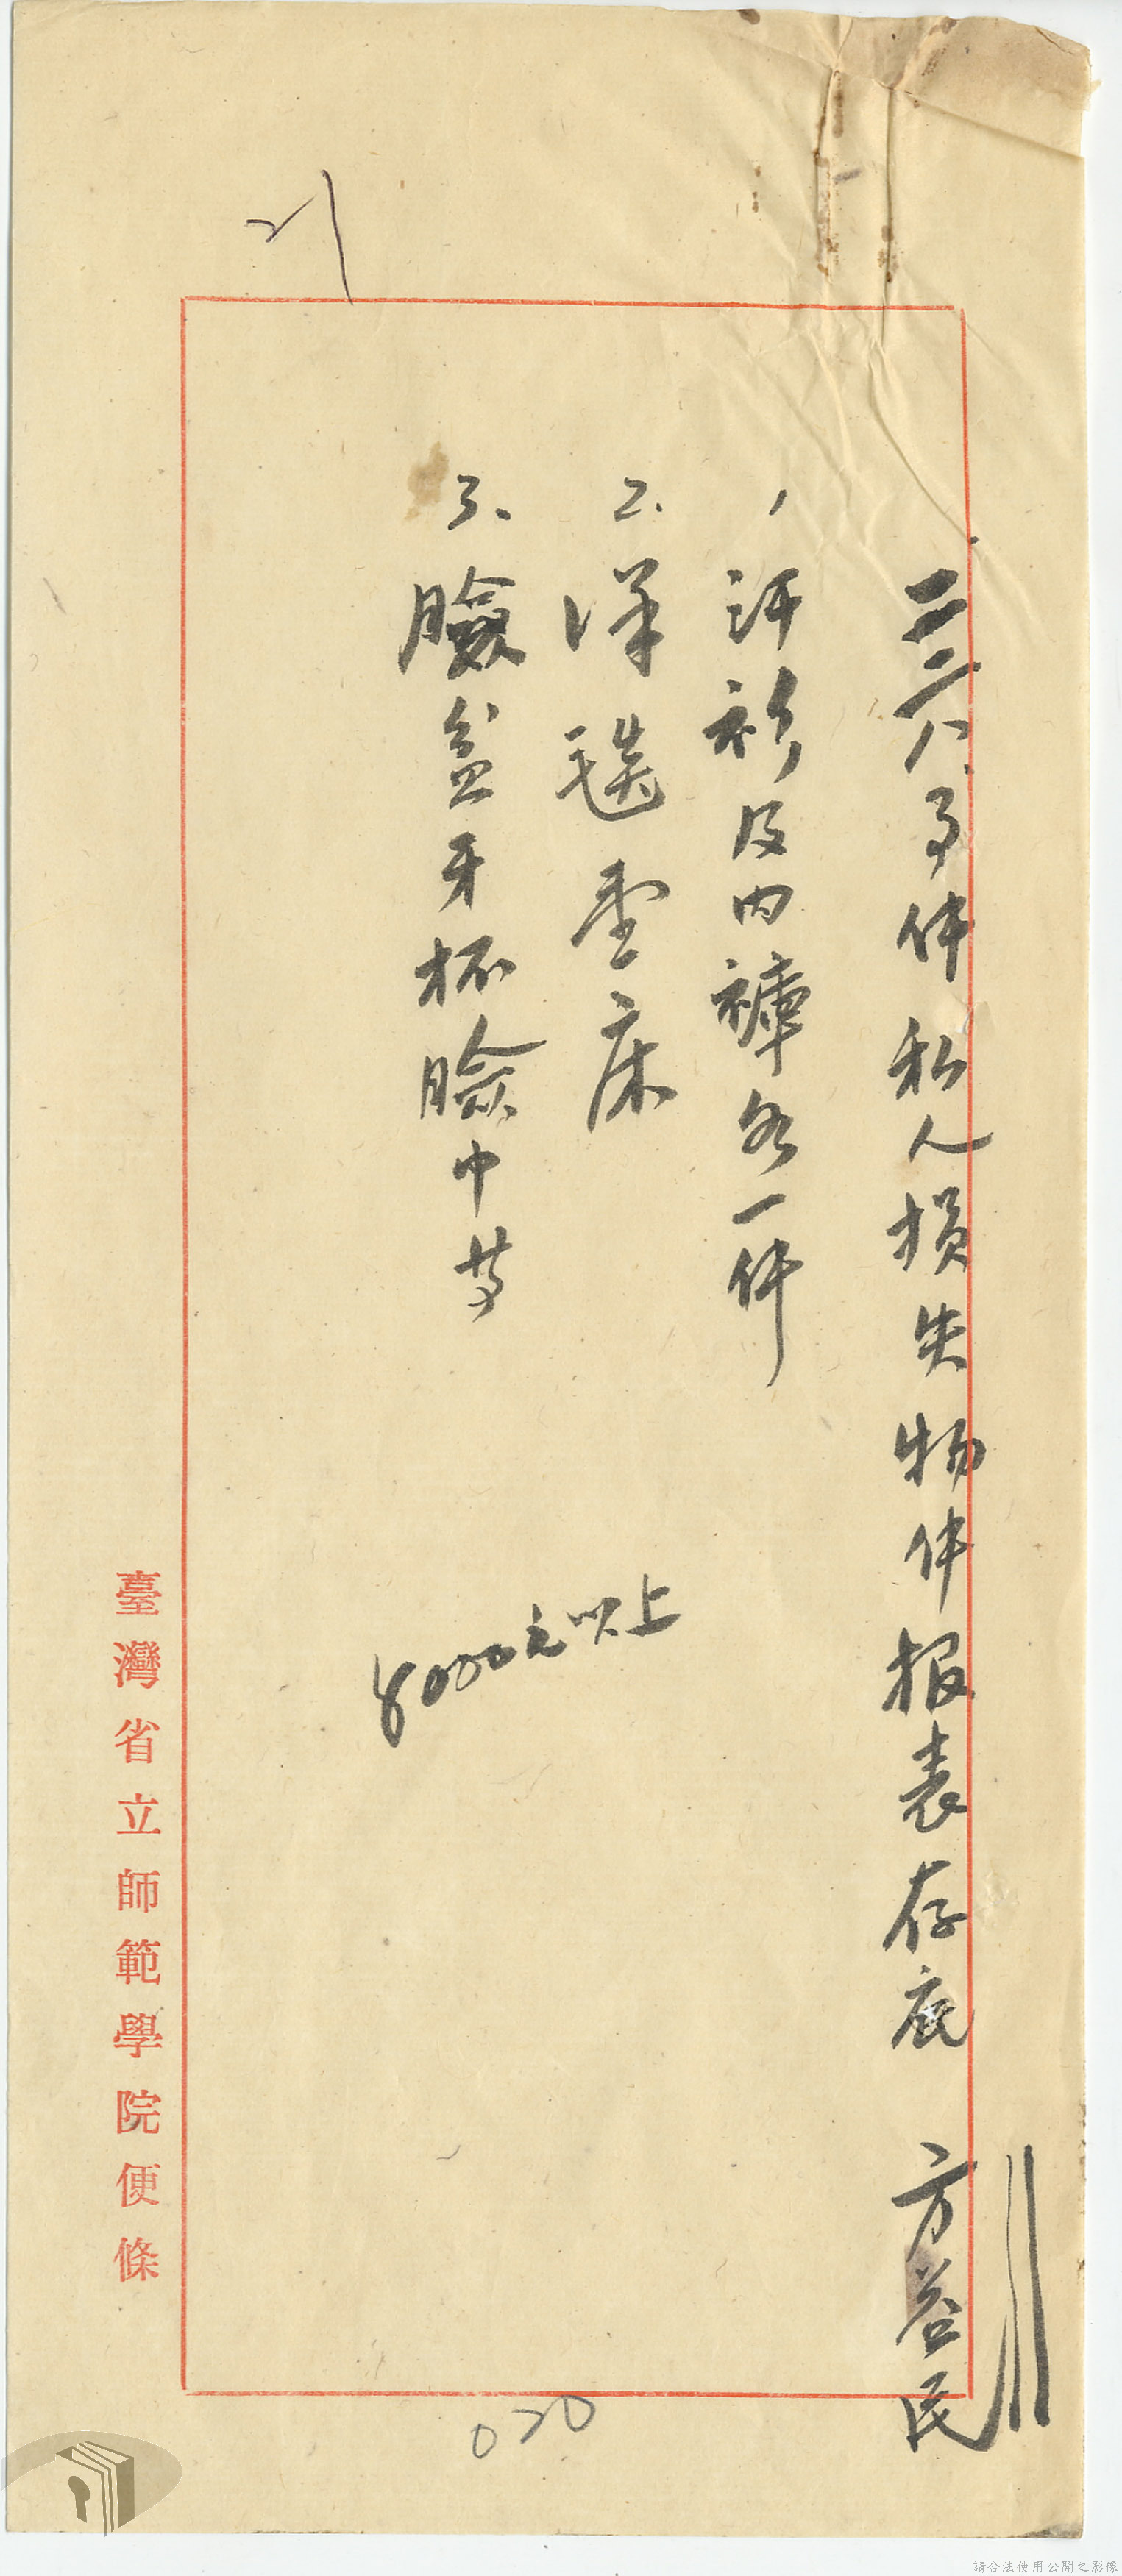 二二八事件私人損失物件报表存底 方益民
1 汗衫及内褲各一件
2、洋毯壹床
3、臉盆牙杯臉巾等
8000元以上
21
臺灣省立師範學院便條
020
請合法使用公開之影像